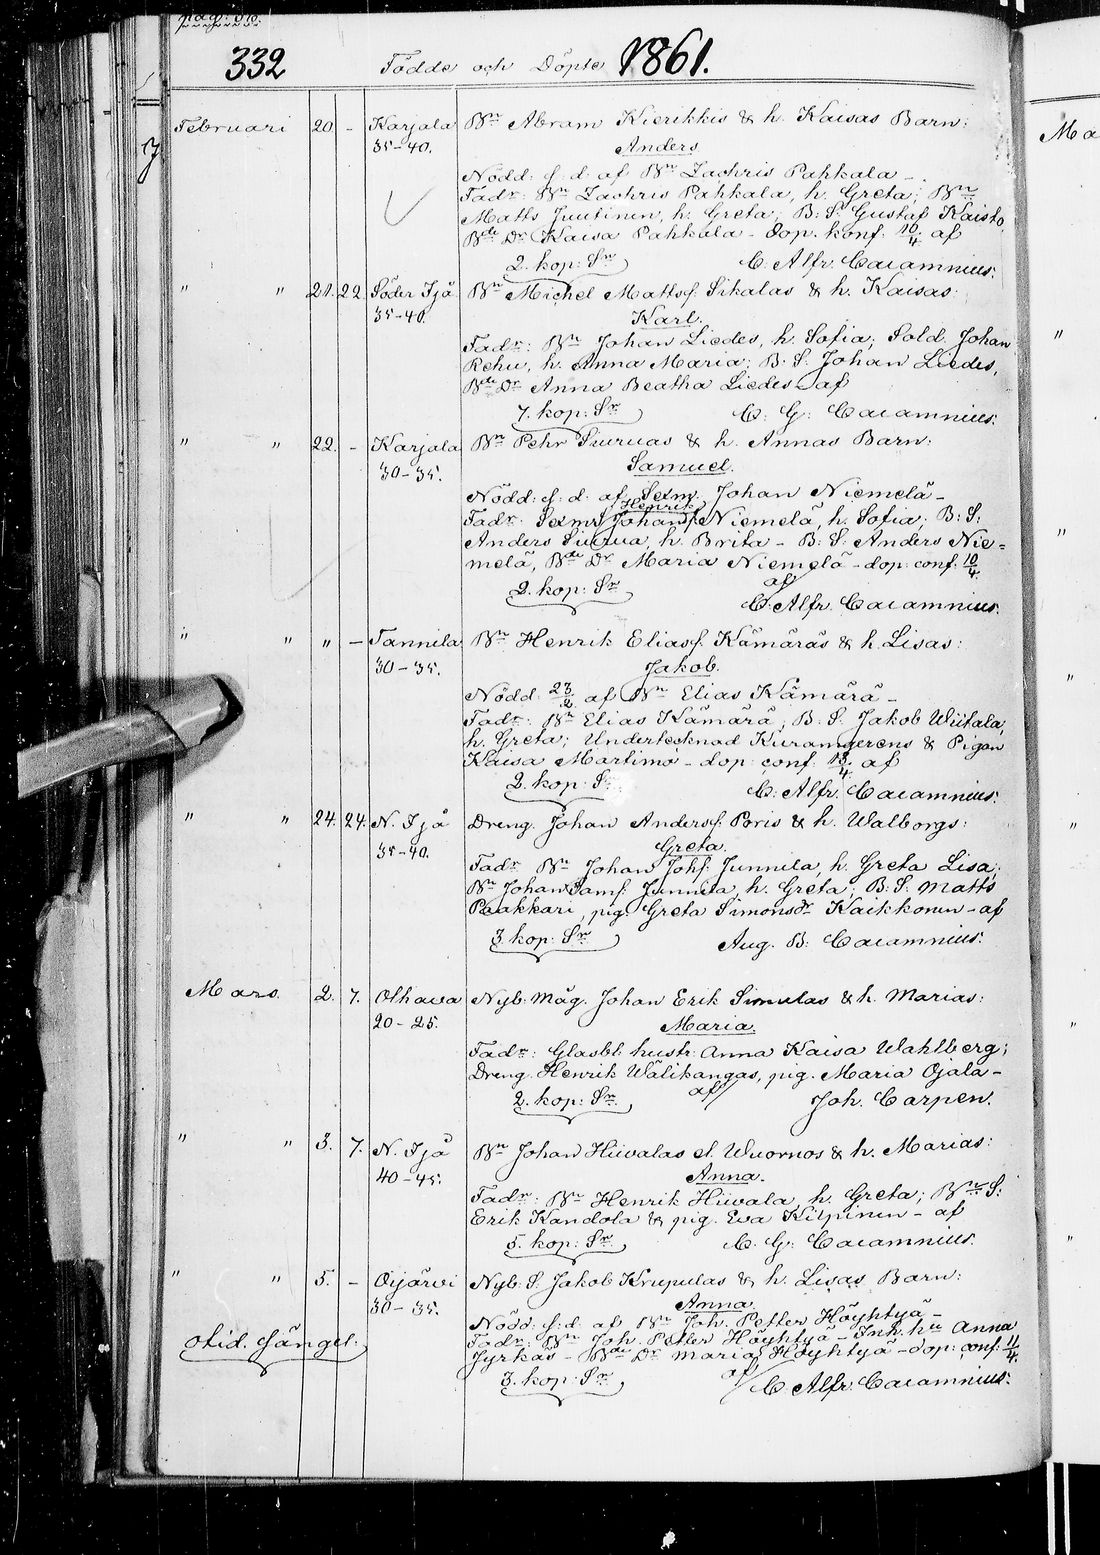 332 Födde och Döpte 1861.
Februari 20. - Karjala Bn Abram Kierikkis & h. Kaisas Barn:
35-40. Anders
Nödd: s. d. af Bn Zachris Pahkala -
Fadr: Bn Zachris Pahkala, h. Greta; Bn
Matts Juutinen, h. Greta; B: S: Gustaf Kaisto,
Bde Dr Kaisa Pahkala - dop. konf: 10/4 af
2. kop: Sr C: Alfr. Cajamnius:
" " 21. 22. Söder Ijå Bn Michel Mattsf. Sikalas & h. Kaisas:
35-40. Karl.
Fadr: Bn Johan Liedes, h. Sofia; Sold. Johan
Rehu, h. Anna Maria; B: S: Johan Liedes,
Bde Dr Anna Beatha Liedes - af
7. kop: Sr C: G: Cajamnius:
" " 22. - Karjala Bn Pehr Siuruas & h. Annas Barn:
30-35. Samuel.
Nödd: s: d: af Sexm. Johan Niemelä -
Henrik
Fadr: Sexm: Johansf. Niemelä, h. Sofia; B: S:
Anders Siurua, h. Brita - B: S: Anders Nie=
melä, Bde Dr Maria Niemelä - dop: conf: 10/4
af
2. kop: Sr C: Alfr. Cajamnius:
" " " - Tannila Bn Henrik Eliasf. Kämäräs & h. Lisas:
30-35. Jakob.
Nödd: 23/2 af Bn Elias Kämärä -
Fadr: Bn Elias Kämärä; B: S: Jakob Wiitala,
h. Greta; Undertecknad & Pigan
Kaisa Martimo - dop: conf: af
2. kop: S C: Alfr. Cajamnius:
" " 24. 24. N. Ijå Dreng. Johan Andersf. Poris & h. Walborgs:
35-40. Greta.
Fadr Bn Johan Johf. Junnila, h. Greta Lisa;
Bn Johan Samf. Junnila, h. Greta; B: S: Matts
Paakkari, pig. Greta Simonsdr Kaikkonen - af
3. kop: Sr Aug. B: Cajamnius:
Mars. 2. 7. Olhava Nyb: Måg. Johan Erik Simulas & h. Marias:
20-25. Maria.
Fadr: Glasbl: hustr: Anna Kaisa Wahlberg;
Dreng. Henrik Wälikangas, pig. Maria Ojala -
af
2. kop: Sr Joh. Carpen.
" " 3. 7. N. Ijå Bn Johan Hiivalas el. Wuornos & h. Marias:
40-45. Anna.
Fadr: Bn Henrik Hiivala, h. Greta; Bn S:
Erik Kandola & pig. Eva Kilpinen - af
5. kop: Sr C. G: Cajamnius.
" " 5. - Oijärvi Nyb: S: Jakob Krupulas & h. Lisas Barn:
30-35. Anna.
Nödd: s: d: af Bn Joh. Petter Höyhtyä -
Fadr: Bn Joh. Petter Höyhtyä - Inh. hu Anna
otid. sängel:
Jyrkäs - Bde Dr Maria Höyhtyä - dop: conf: 11/4.
af
3. kop: Sr C. Alfr. Cajamnius:
Ma